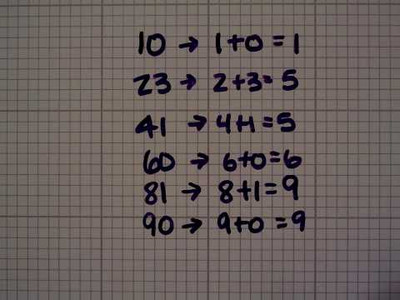 10 → 1+0=1
23 → 2+3=5
41 → 4+1=5
60 → 6+0=6
81 → 8+1=9
90 → 9+0=9